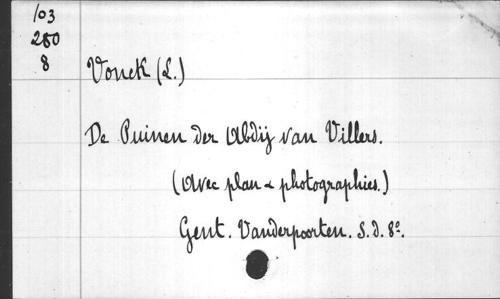 103
280
8
Vonck (L.)
De Puinen der Abdij van Villers.
(Avec plan & photographies.)
Gent. Vanderpoorten. S.d. 8º.